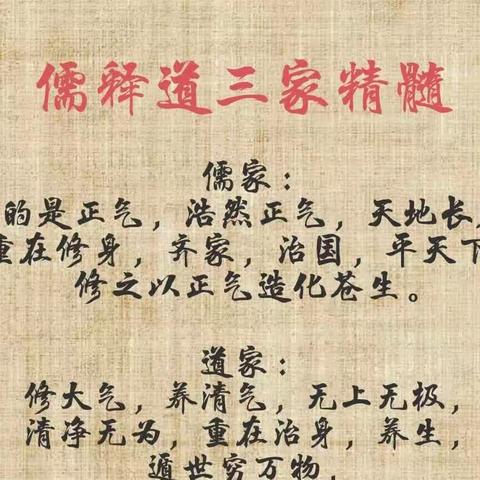 儒释道三家精髓
儒家：
的是正气，浩然正气，天地长，
重在修身，齐家，治国，平天下
修之以正气造化苍生。
道家：
修大气，养清气，无上无极，
清净无为，重在治身，养生，
遁世穷万物，